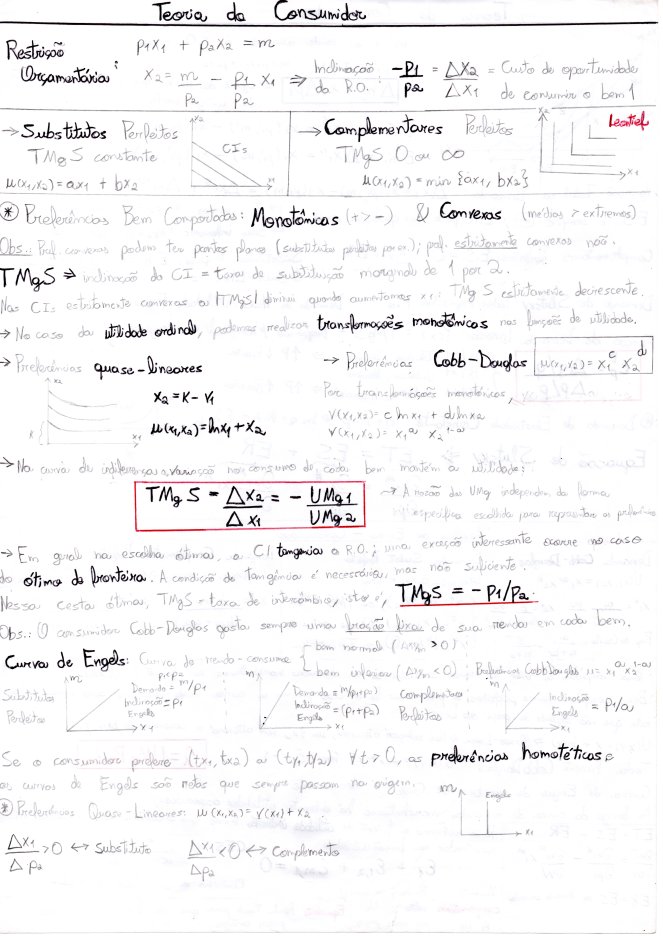 Teoria do Consumidor
Restrição Orçamentária:
p1x1 + p2x2 = m
x2 = m/p2 - p1/p2 x1 ⇒ Inclinação da R.O.: -p1/p2 = Δx2/Δx1 = Custo de oportunidade de consumir o bem 1
→ Substitutos Perfeitos
TMgS constante
u(x1,x2) = ax1 + bx2
CIs
x1
→ Complementares Perfeitos
TMgS 0 ou ∞
u(x1,x2) = min {ax1, bx2}
x2
Leontief
x1
* Preferências Bem Comportadas: Monotônicas (+ > -) & Convexas (médias > extremos)
Obs.: Pref. convexas podem ter partes planas (substitutos perfeitos por ex.); pref. estritamente convexas não.
TMgS ⇒ inclinação da CI = taxa de substituição marginal de 1 por 2.
Nas CIs estritamente convexas a |TMgS| diminui quando aumentamos x1: TMgS estritamente decrescente.
→ No caso da utilidade ordinal, podemos realizar transformações monotônicas nas funções de utilidade.
→ Preferências quase-lineares
x2
x2 = K - v1
u(x1,x2) = ln x1 + x2
K
x1
→ Preferências Cobb-Douglas
u(x1,x2) = x1^c x2^d
Por transformações monotônicas,
V(x1,x2) = c ln x1 + d ln x2
V(x1,x2) = x1^a x2^1-a
→ Na curva de indiferença, a variação no consumo de cada bem mantém a utilidade:
TMgS = Δx2/Δx1 = - UMg1/UMg2
→ A razão das UMg independem da forma
específica escolhida para representar as preferências
→ Em geral na escolha ótima, a CI tangencia a R.O.; uma exceção interessante ocorre no caso
do ótimo de fronteira. A condição de tangência é necessária, mas não suficiente.
Nessa cesta ótima, TMgS = taxa de intercâmbio, isto é, TMgS = -p1/p2.
Obs.: O consumidor Cobb-Douglas gasta sempre uma fração fixa de sua renda em cada bem.
Curva de Engels: Curva de renda-consumo
bem normal ( > 0)
bem inferior ( < 0)
Preferências Cobb Douglas u = x1^a x2^1-a
Substitutos Perfeitos
m
p1<p2
Demanda = m/p1
Inclinação = p1
x1
m
Demanda = m/(p1+p2)
Inclinação Engels = (p1+p2)
x1
Complementares Perfeitos
m
Inclinação Engels = p1/a
x1
Se o consumidor prefere (tx1, tx2) a (ty1, ty2) ∀ t > 0, as preferências homotéticas e
as curvas de Engels são retas que sempre passam na origem.
* Preferências Quase-Lineares: u(x1,x2) = V(x1) + x2.
m
Engels
x1
Δx1/Δp2 > 0 ↔ Substituto
Δx1/Δp2 < 0 ↔ Complemento